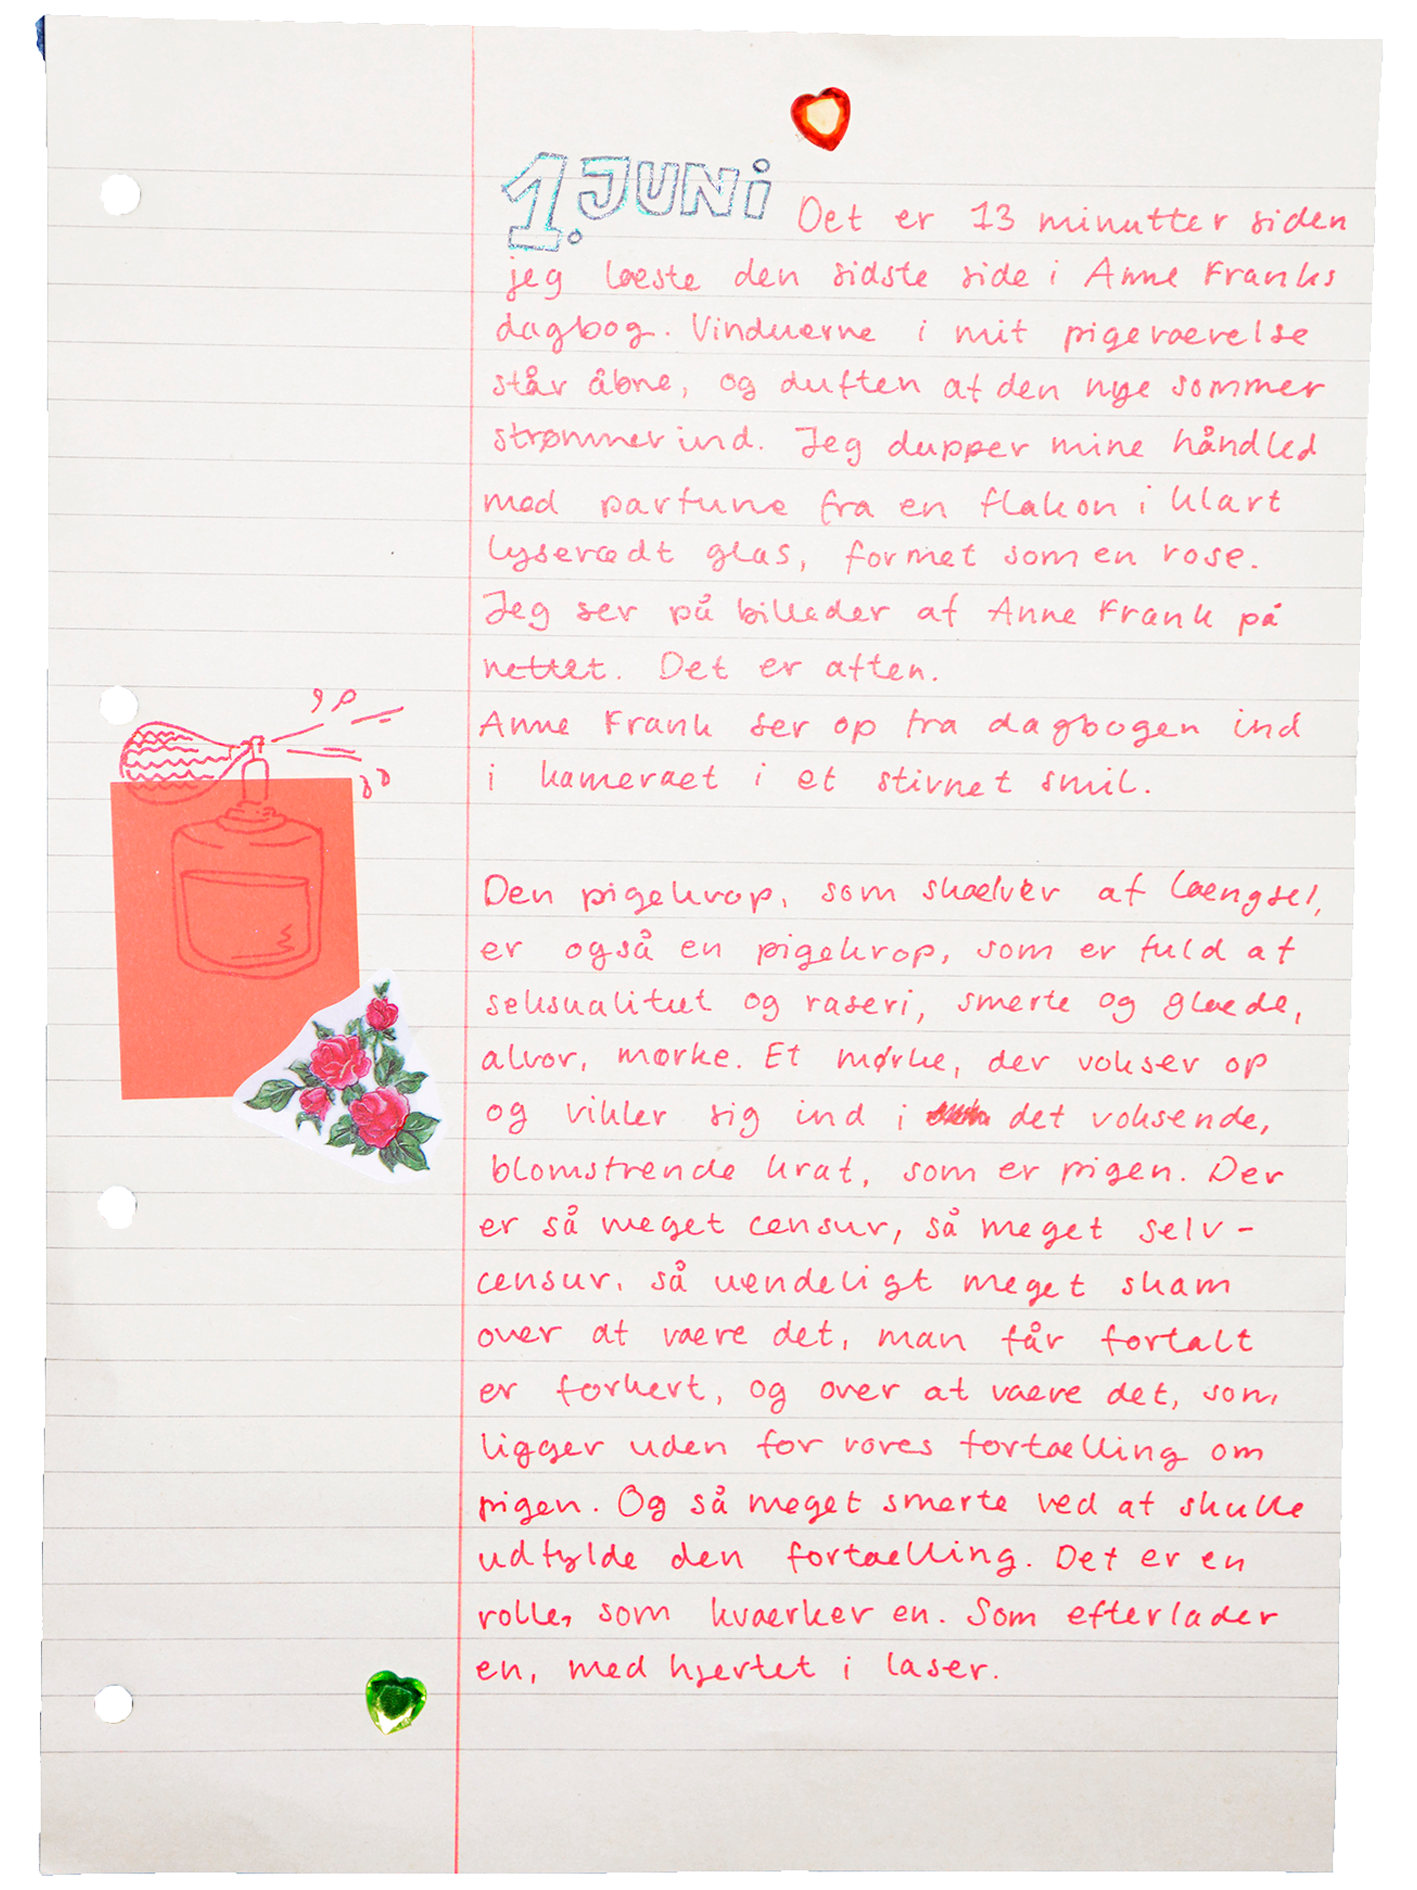 1. JUNI Det er 13 minutter siden
jeg læste den sidste side i Anne Franks
dagbog. Vinduerne i mit pigeværelse
står åbne, og duften af den nye sommer
strømmer ind. Jeg dupper mine håndled
med parfume fra en flakon i klart
lyserødt glas, formet som en rose.
Jeg ser på billeder af Anne Frank på
nettet. Det er aften.
Anne Frank ser op fra dagbogen ind
i kameraet i et stivnet smil.
Den pigekrop, som skælver af længsel,
er også en pigekrop, som er fuld af
seksualitet og raseri, smerte og glæde,
alvor, mørke. Et mørke, der vokser op
og vikler sig ind i det voksende,
blomstrende krat, som er pigen. Der
er så meget censur, så meget selv-
censur, så uendeligt meget skam
over at være det, man får fortalt
er forkert, og over at være det, som
ligger uden for vores fortælling om
pigen. Og så meget smerte ved at skulle
udfylde den fortælling. Det er en
rolle, som kværker en. Som efterlader
en, med hjertet i laser.